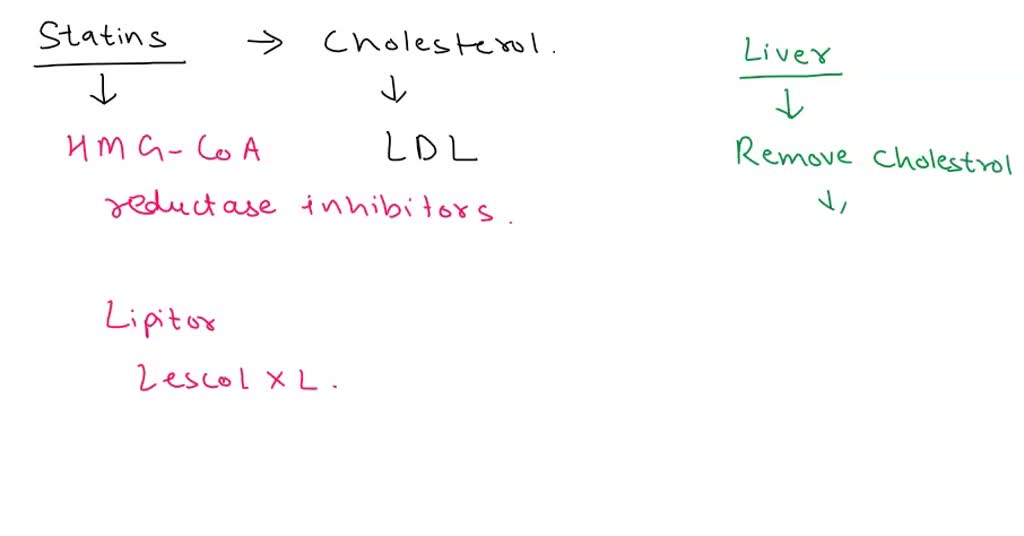 Statins → Cholesterol.
↓ ↓
HMG-CoA LDL
reductase inhibitors.
Lipitor
Lescol XL.
Liver
↓
Remove Cholestrol
↓